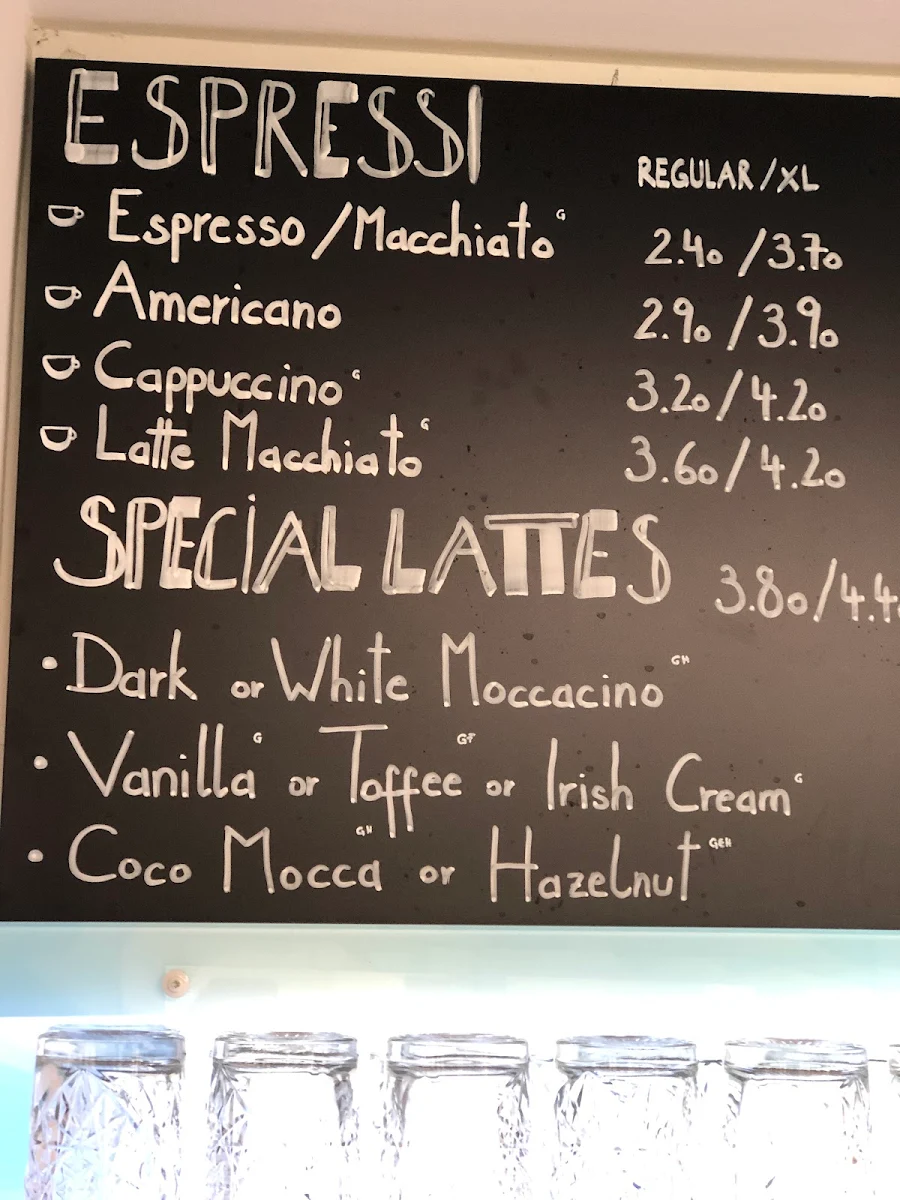 ESPRESSI
REGULAR/XL
Espresso/Macchiato G 2.40/3.70
Americano 2.90/3.90
Cappuccino G 3.20/4.20
Latte Macchiato G 3.60/4.20
SPECIAL LATTES 3.80/4.4
• Dark or White Moccacino GH
• Vanilla G or Toffee GF or Irish Cream G
• Coco Mocca GH or Hazelnut GEH